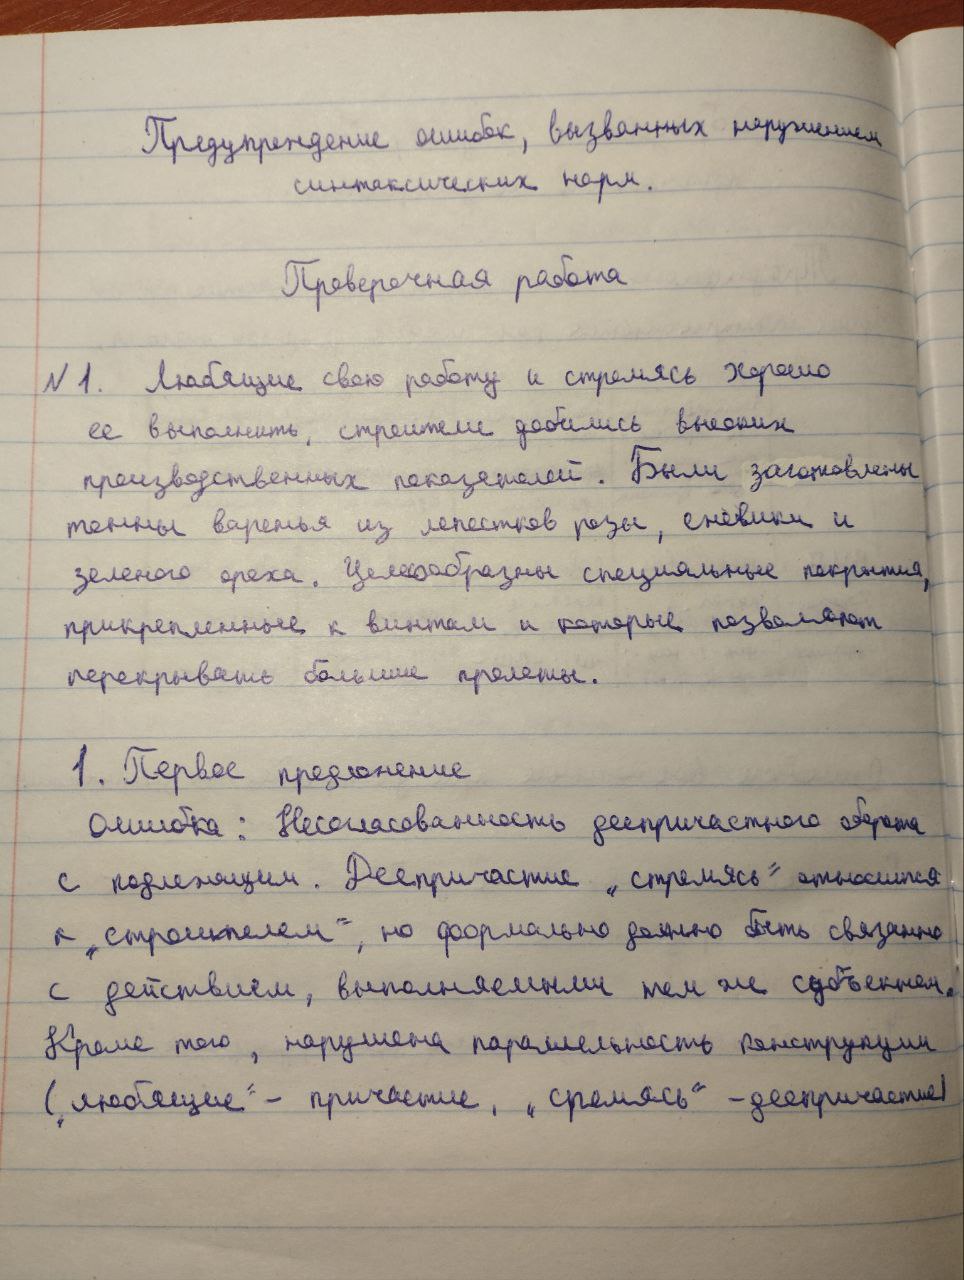 Предупреждение ошибок, вызванных нарушением
синтаксических норм.
Проверочная работа
№1. Любящие свою работу и стремясь хорошо
ее выполнить, строители добились высоких
производственных показателей. Были заготовлены
тонны варенья из лепестков розы, ежевики и
зеленого ореха. Целесообразны специальные покрытия,
прикрепленные к винтам и которые позволяют
перекрывать большие пролеты.
1. Первое предложение
Ошибка: Несогласованность деепричастного оборота
с подлежащим. Деепричастие „стремясь" относится
к „строителем", но формально должно быть связанно
с действием, выполняемыми тем же субъектом.
Кроме того, нарушена параллельность конструкции
(„любящие" - причастие, „сремясь" - деепричастие)